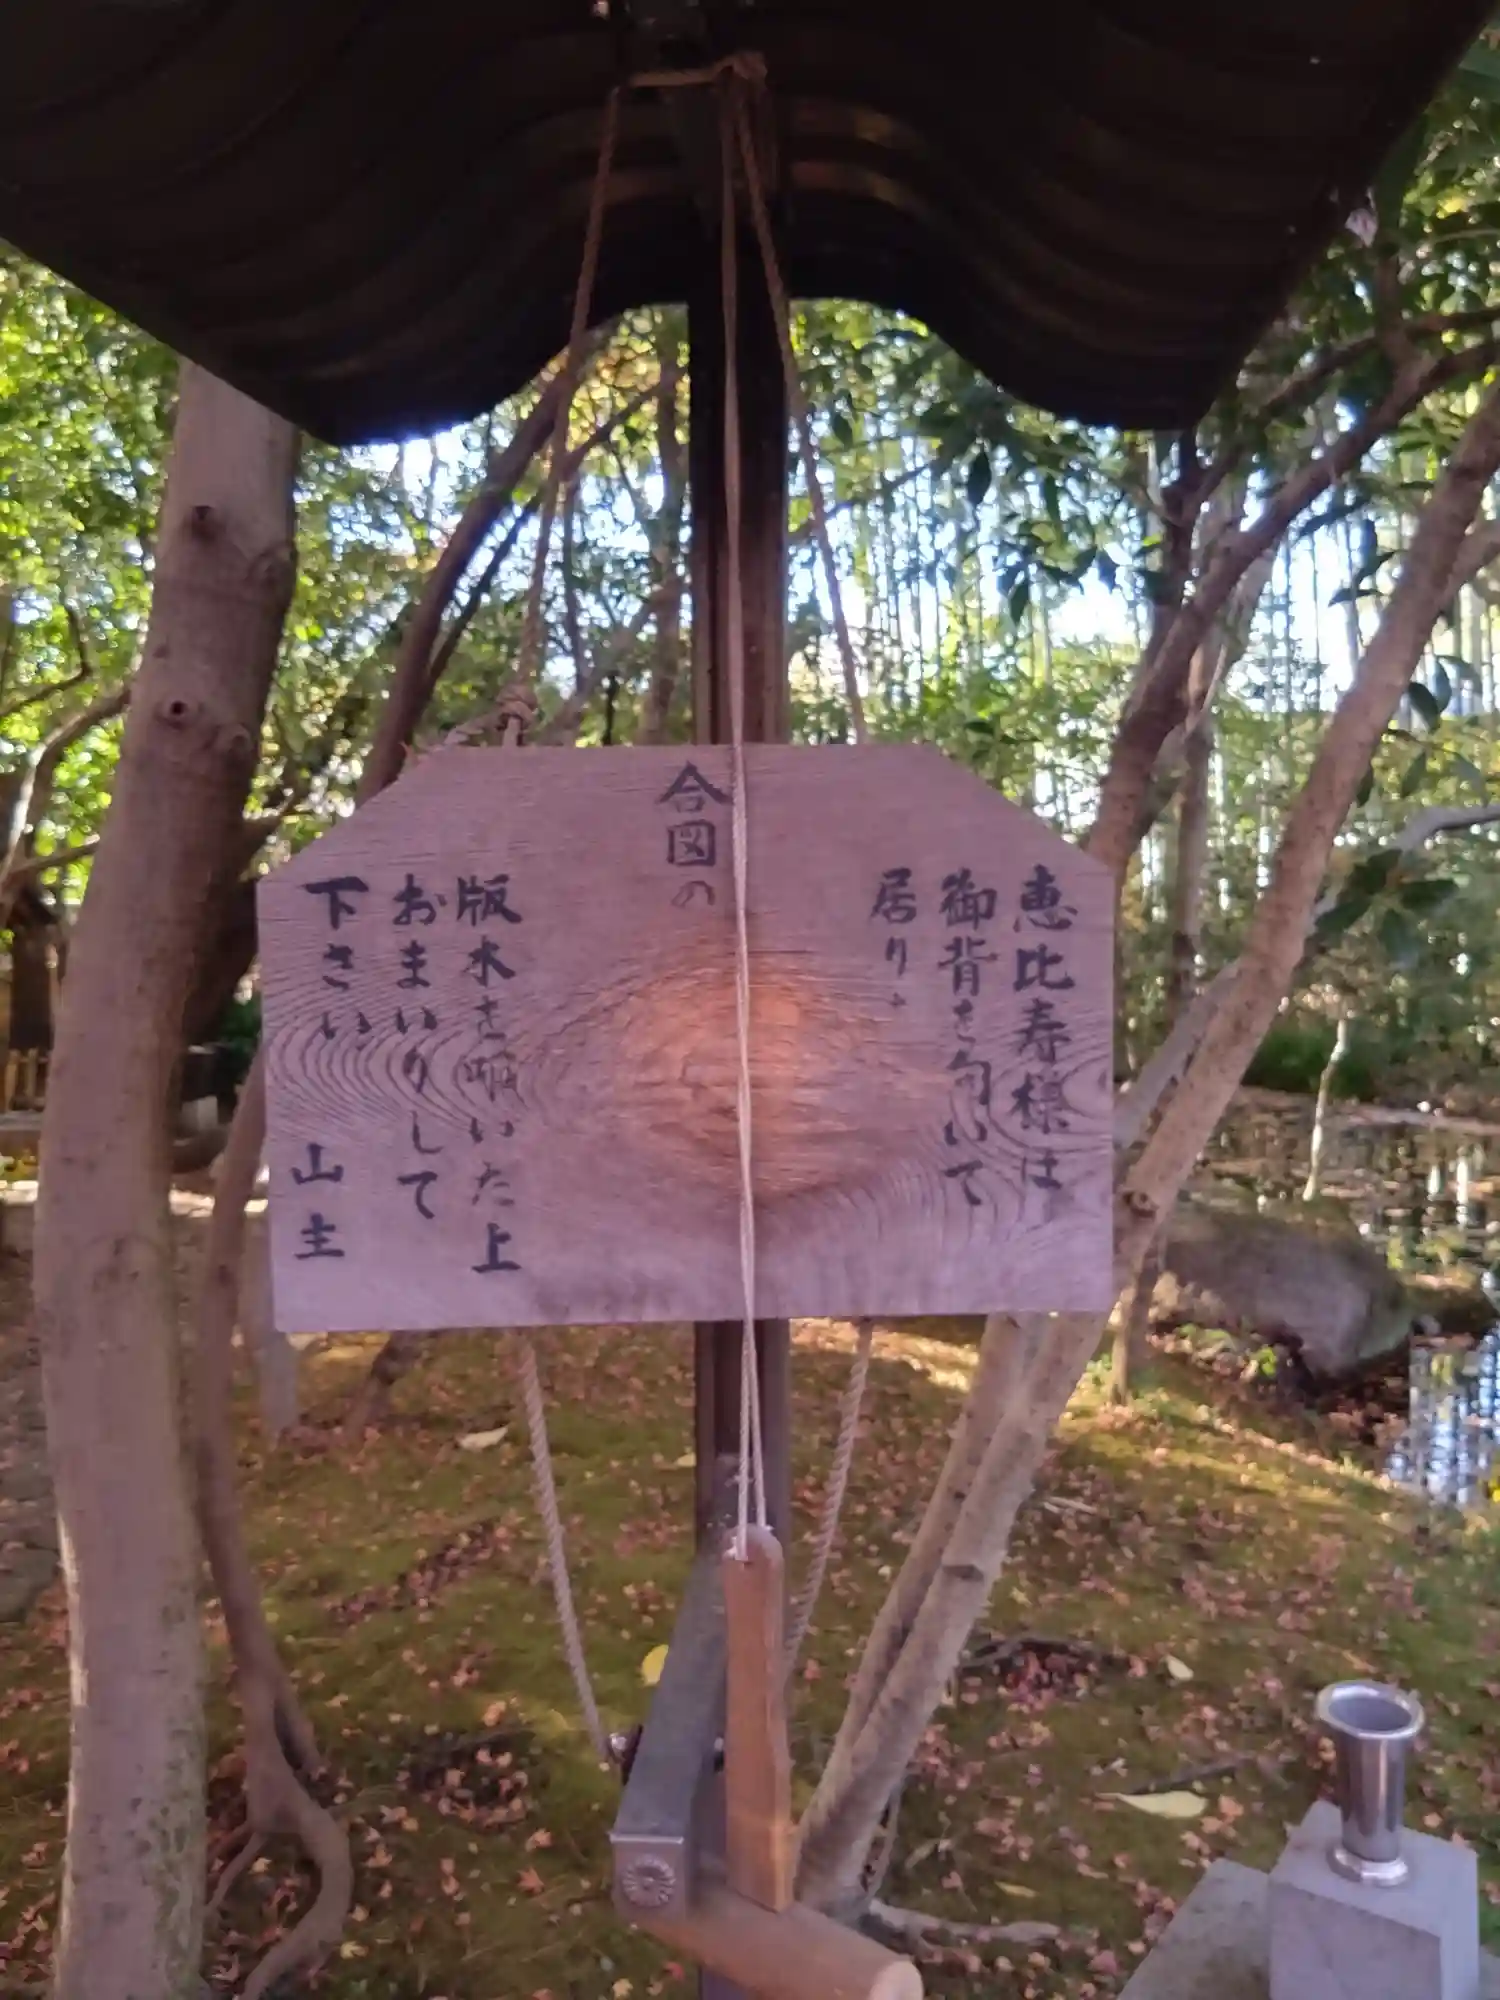 恵比寿様は
御背を向いて
居り
合図の
版木を叩いた上
おまいりして
下さい 山主